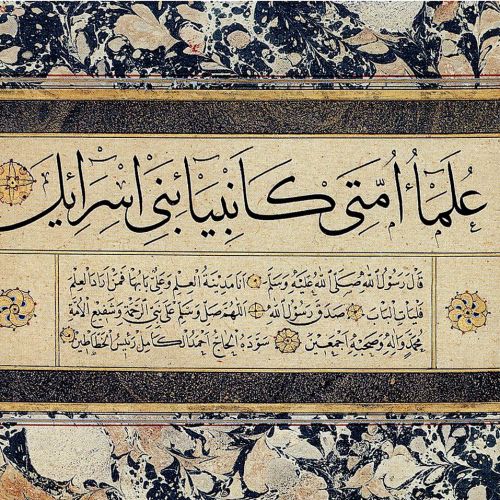 عُلَمَاءُ اُمَّتِى كَاَنْبِيَاءِ بَنِى اِسْرَائِلَ
قَالَ رَسُولُ اللّٰهِ صَلَّى اللّٰهُ عَلَيْهِ وَسَلَّمَ اَنَا مَدِينَةُ الْعِلْمِ وَعَلِىٌّ بَابُهَا فَمَنْ اَرَادَ الْعِلْمَ
فَلْيَأْتِ الْبَابَ صَدَقَ رَسُولُ اللّٰهِ اَللّٰهُمَّ صَلِّ وَسَلِّمْ عَلٰى نَبِىِّ الرَّحْمَةِ وَشَفِيعِ الْاُمَّةِ
مُحَمَّدٍ وَآلِهِ وَصَحْبِهِ اَجْمَعِينَ سَوَّدَهُ الْحَاجُّ اَحْمَدُ الْكَامِلُ رَئِيسُ الْخَطَّاطِينَ